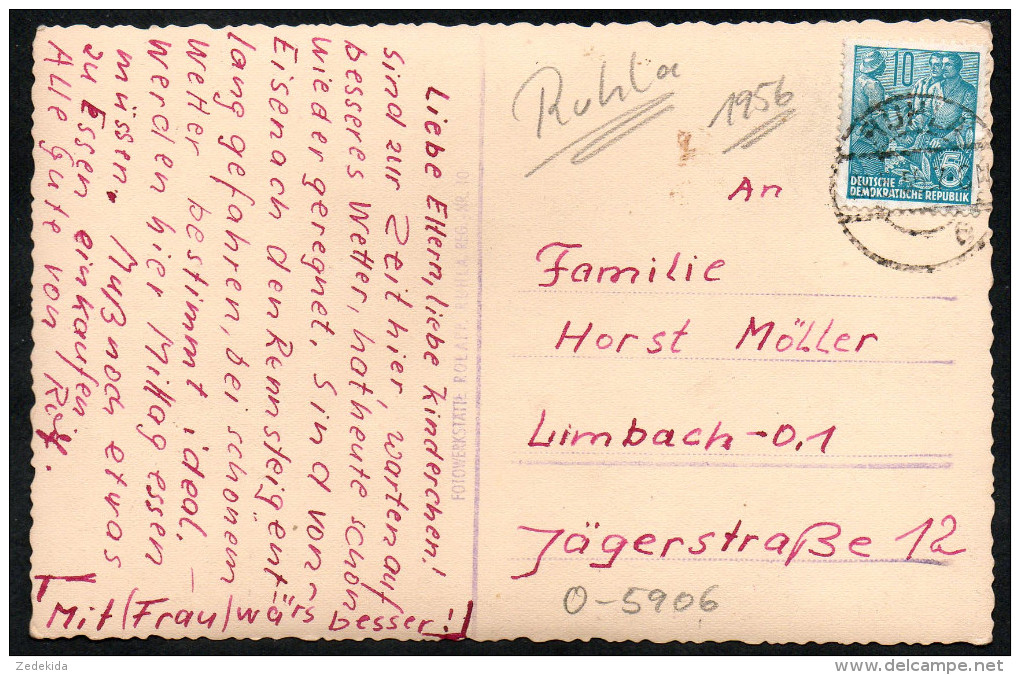 Liebe Eltern, liebe Kinderchen!
sind zur Zeit hier, warten auf
besseres Wetter, hat heute schon
wieder geregnet. Sind von
Eisenach den Rennsteig ent-
lang gefahren, bei schönem
Wetter bestimmt ideal. –
Werden hier Mittag essen
müssen. Muß noch etwas
zu Essen einkaufen
Alle Gute von
Mit (Frau) wärs besser!
FOTOWERKSTÄTTE ROLAPP, RUHLA, REG.-NR. 10
Ruhla
1956
10
5
DEUTSCHE
DEMOKRATISCHE REPUBLIK
An
Familie
Horst Möller
Limbach-O,1
Jägerstraße 12
O-5906
Zedekida
www.delcampe.net